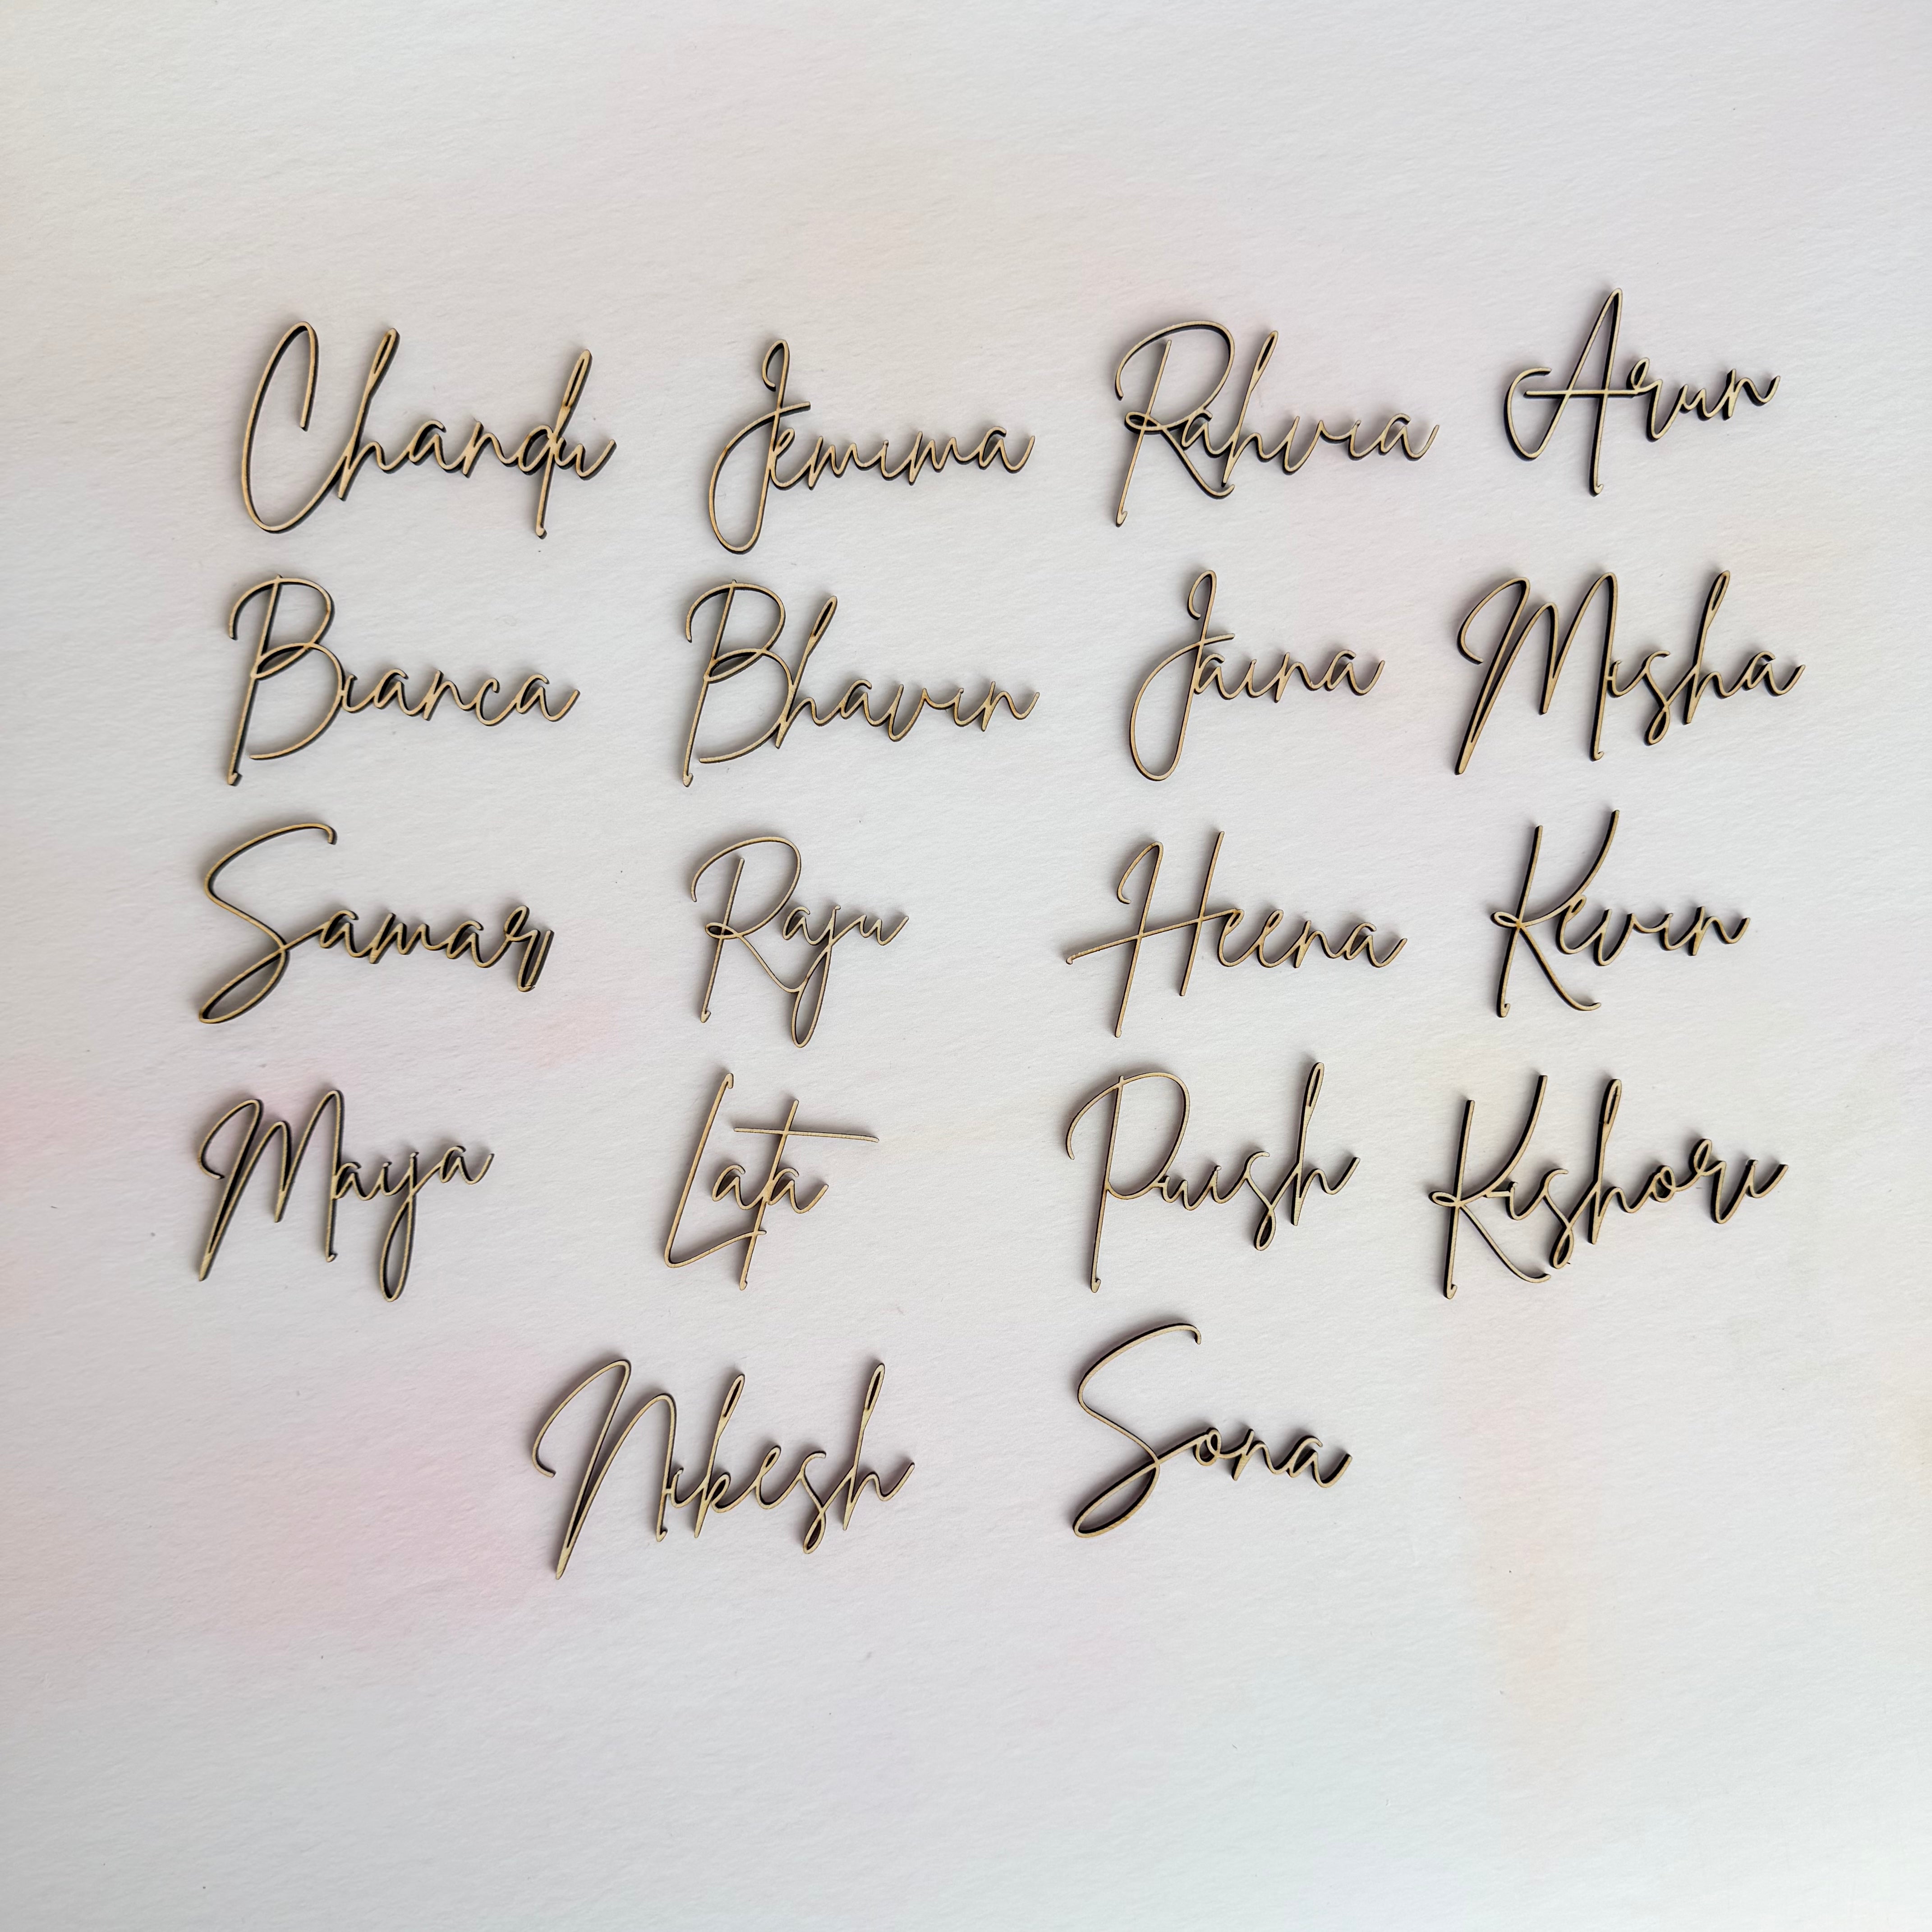 Chandu Jemima Rahvia Arun
Bianca Bhavin Jaina Misha
Samar Raju Heena Kevin
Maya Lata Puish Kishori
Nikesh Sona